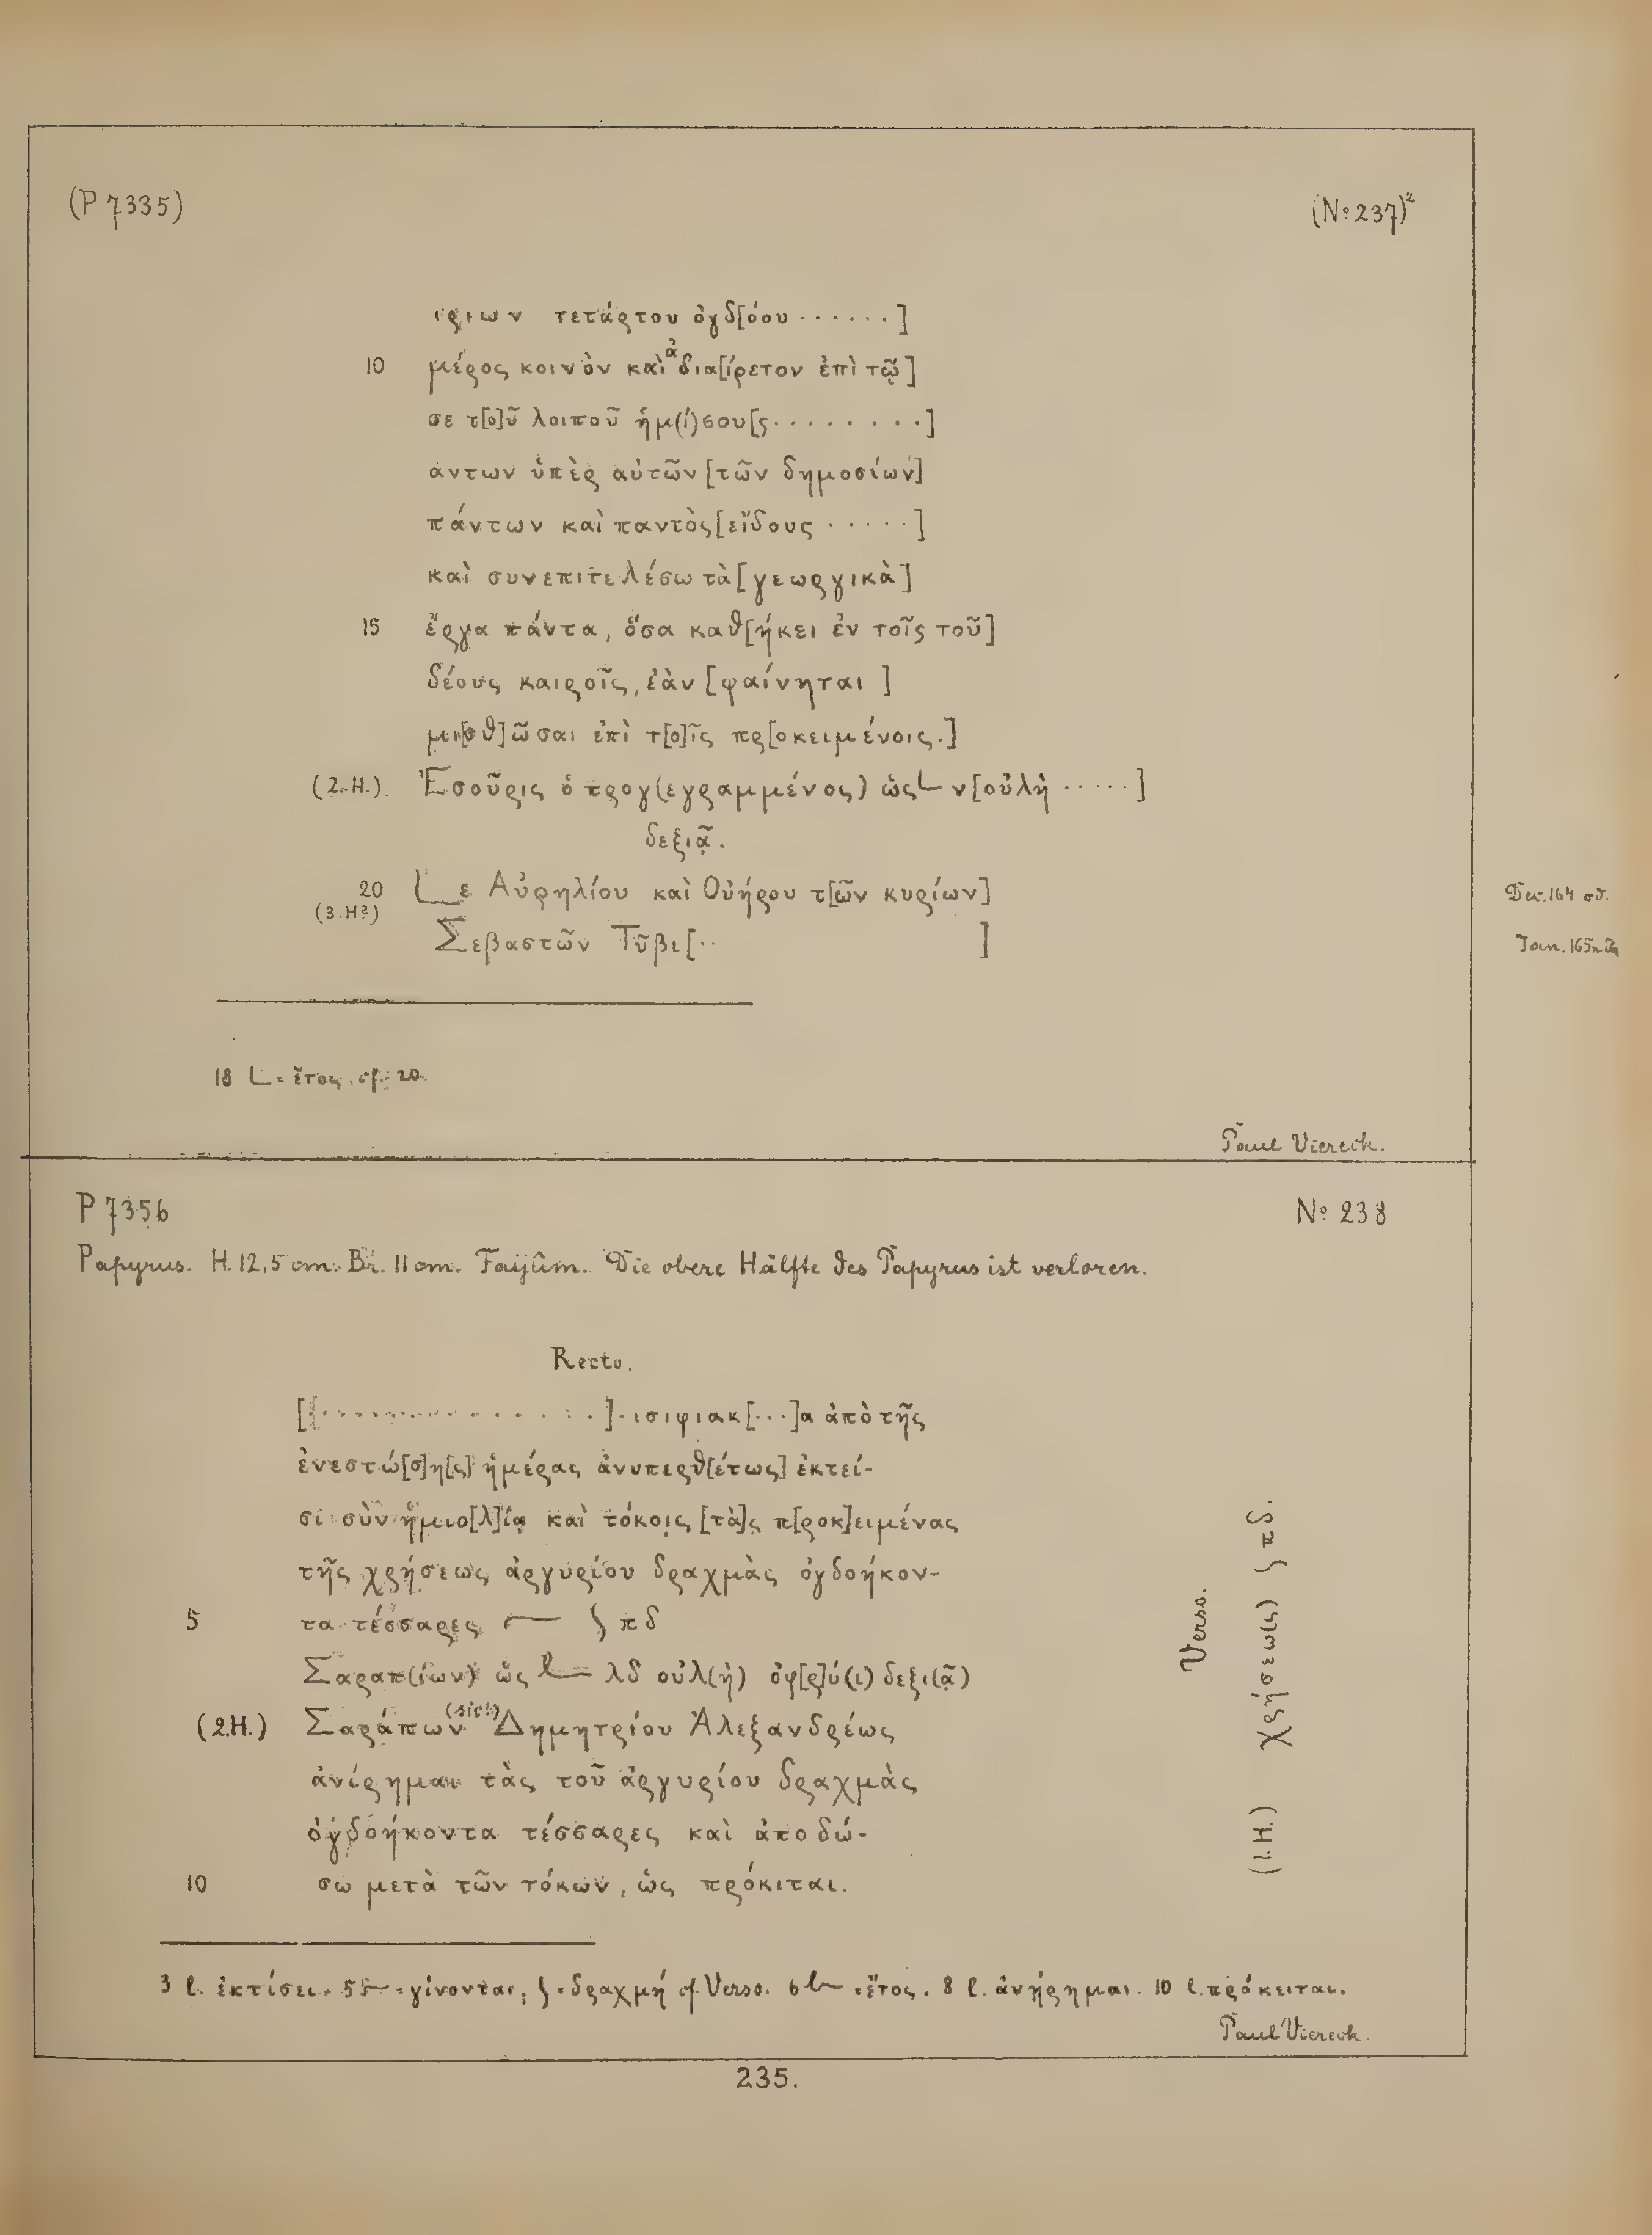 (P 7335)
(No 237)²
ιριων τετάρτου ὀγδ[όου ······]
10 μέρος κοινὸν καὶ ἀδια[ίρετον ἐπὶ τῷ]
σε τ[ο]ῦ λοιποῦ ἡμ(ί)σου[ς ········]
αντων ὑπὲρ αὐτῶν [τῶν δημοσίων]
πάντων καὶ παντὸς [εἴδους ·····]
καὶ συνεπιτελέσω τὰ [γεωργικὰ]
15 ἔργα πάντα, ὅσα καθ[ήκει ἐν τοῖς τοῦ]
δέους καιροῖς, ἐὰν [φαίνηται ]
μι[σθ]ῶσαι ἐπὶ τ[ο]ῖς πρ[οκειμένοις.]
(2.H.) Ἐσοῦρις ὁ προγ(εγραμμένος) ὡς L ν [οὐλὴ ·····]
δεξιᾷ.
20 L ε Αὐρηλίου καὶ Οὐήρου τ[ῶν κυρίων]
(3.H?) Σεβαστῶν Τῦβι [·· ]
Dec. 164 od.
Jan. 165 n.
18 L = ἔτος, cf. 20.
Paul Viereck.
P 7356
No 238
Papyrus. H. 12,5 cm. Br. 11 cm. Faijûm. Die obere Hälfte des Papyrus ist verloren.
Recto.
[·················]·ισιφιακ[···]α ἀπὸ τῆς
ἐνεστώ[σ]η[ς] ἡμέρας ἀνυπερθ[έτως] ἐκτεί-
σι σὺν ἡμιο[λ]ίᾳ καὶ τόκοις [τὰ]ς π[ροκ]ειμένας
τῆς χρήσεως ἀργυρίου δραχμὰς ὀγδοήκον-
5 τα τέσσαρες 𐅼 ∫ πδ
Σαραπ(ίων) ὡς L λδ οὐλ(ὴ) ὀφ[ρ]ύ(ι) δεξι(ᾷ)
(2.H.) Σαράπων (sic!) Δημητρίου Ἀλεξανδρέως
ἀνίρημαι τὰς τοῦ ἀργυρίου δραχμὰς
ὀγδοήκοντα τέσσαρες καὶ ἀποδώ-
10 σω μετὰ τῶν τόκων, ὡς πρόκιται.
Verso.
(1.H.) χρήσεω(ς) ∫ πδ.
3 l. ἐκτίσει. 5 𐅼 = γίνονται, ∫ = δραχμή cf. Verso. 6 L = ἔτος. 8 l. ἀνῄρημαι. 10 l. πρόκειται.
Paul Viereck.
235.